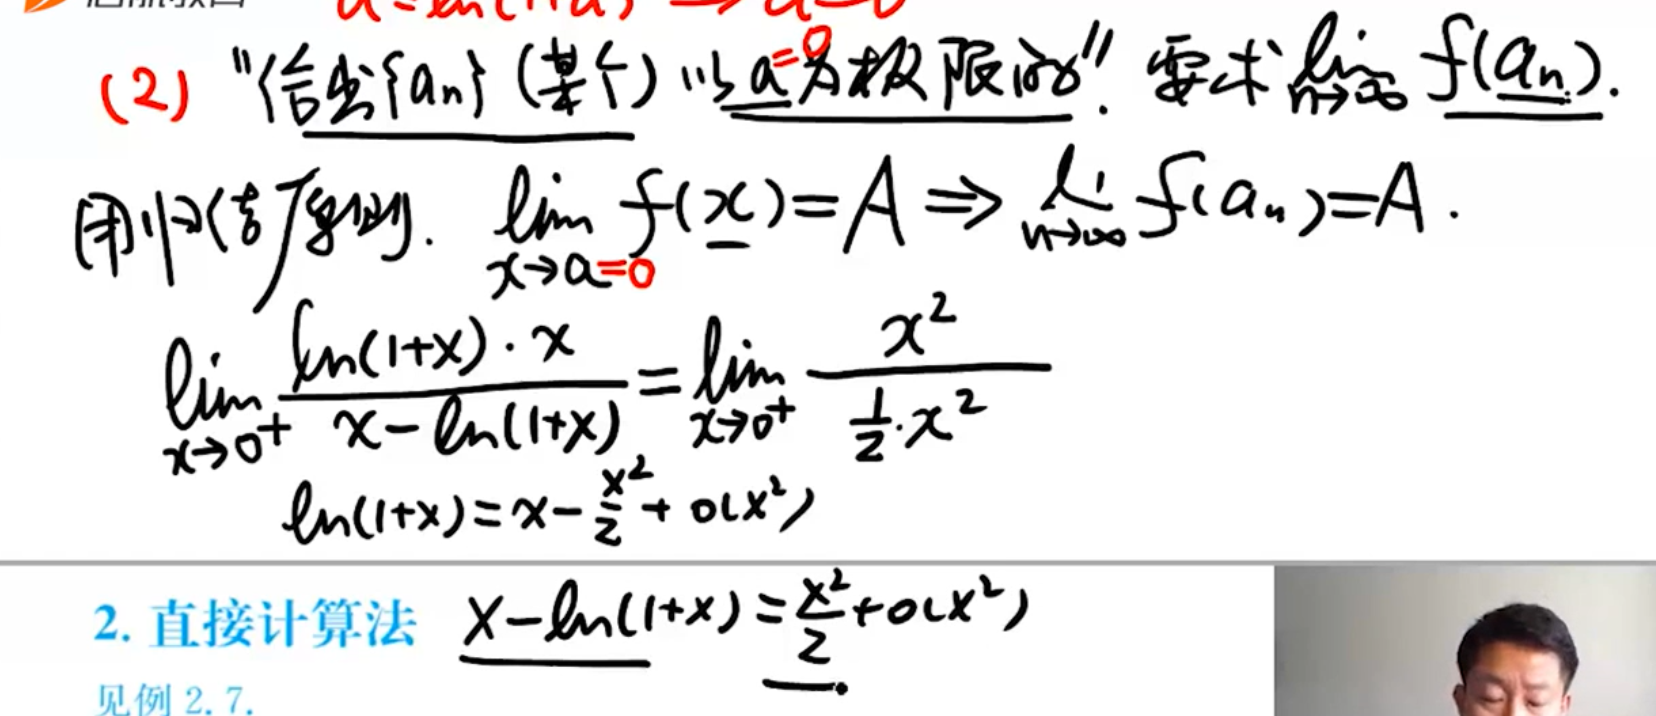 a=ln(1+a) ⇒ a=0
(2) "给出{aₙ}(某个)以a=0为极限的". 要求 lim n→∞ f(aₙ).
用归结原则. lim x→a=0 f(x)=A ⇒ lim n→∞ f(aₙ)=A.
lim x→0⁺ ln(1+x)·x / x-ln(1+x) = lim x→0⁺ x² / ½·x²
ln(1+x)=x-x²/2+o(x²)
2. 直接计算法 x-ln(1+x)=x²/2+o(x²)
见例 2.7.